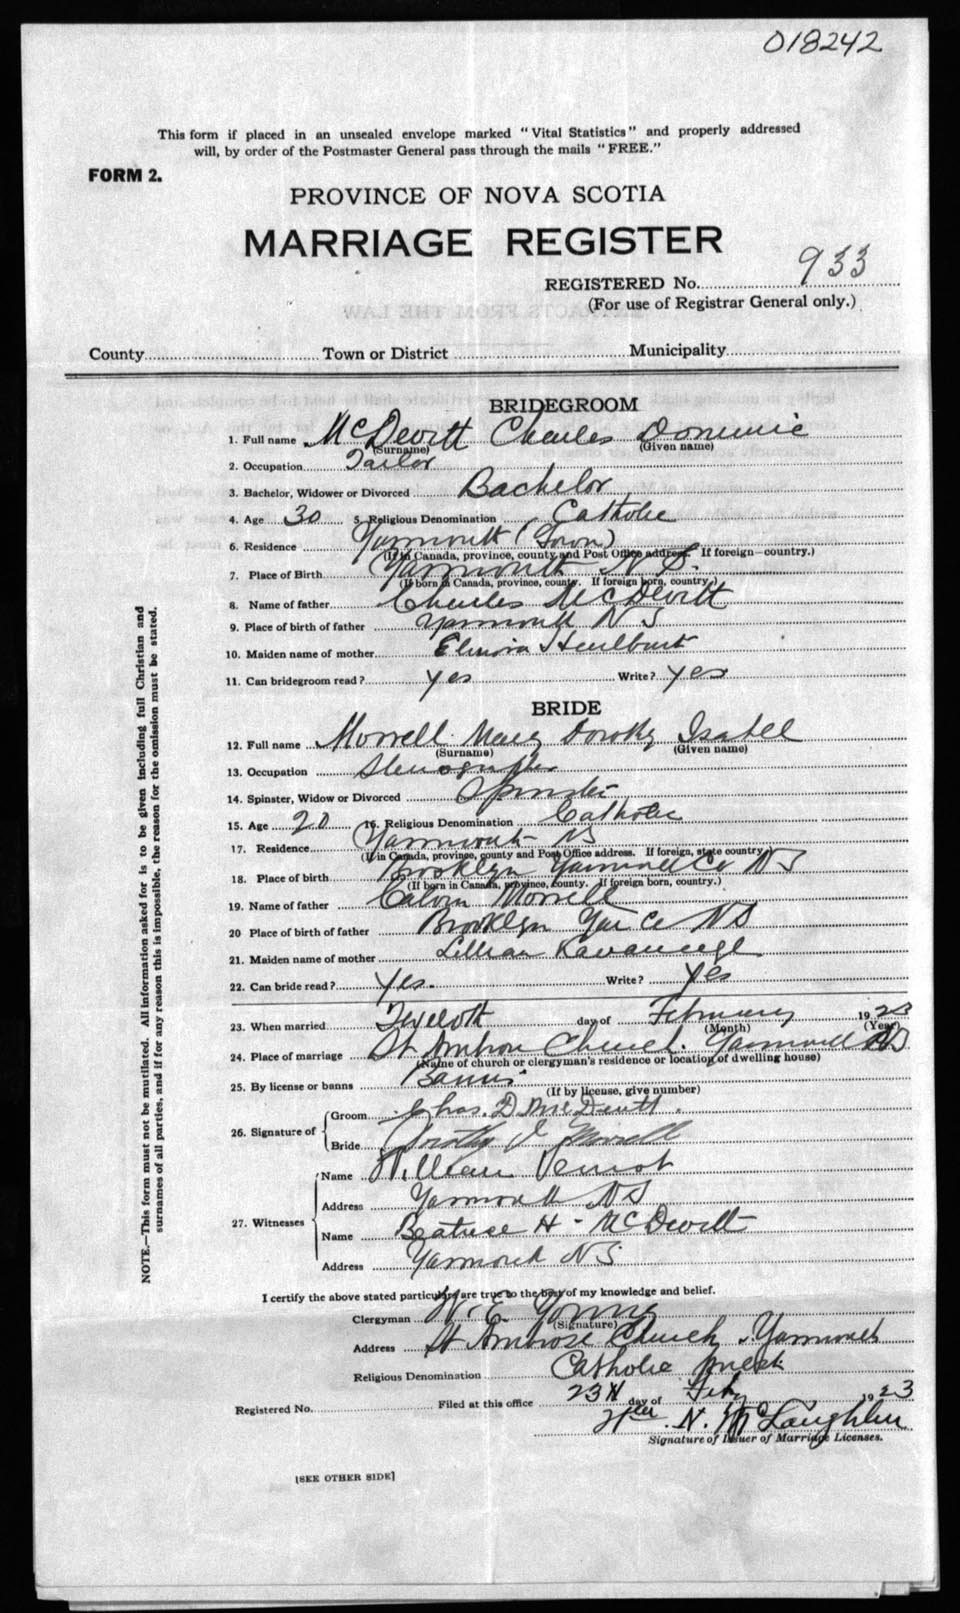 018242
This form if placed in an unsealed envelope marked "Vital Statistics" and properly addressed
will, by order of the Postmaster General pass through the mails "FREE."
FORM 2.
PROVINCE OF NOVA SCOTIA
MARRIAGE REGISTER
REGISTERED No. 933
(For use of Registrar General only.)
County Town or District Municipality
BRIDEGROOM
1. Full name McDevitt Charles Dominic
(Surname) (Given name)
2. Occupation Tailor
3. Bachelor, Widower or Divorced Bachelor
4. Age 30 5. Religious Denomination Catholic
6. Residence Yarmouth (Town)
(If in Canada, province, county, and Post Office address. If foreign—country.)
7. Place of Birth Yarmouth N S.
(If born in Canada, province, county. If foreign born, country.)
8. Name of father Charles McDevitt
9. Place of birth of father Yarmouth N S
10. Maiden name of mother Elmira Hurlburt
11. Can bridegroom read? yes Write? yes
BRIDE
12. Full name Morrell Mary Dorothy Isabell
(Surname) (Given name)
13. Occupation Stenographer
14. Spinster, Widow or Divorced Spinster
15. Age 20 16. Religious Denomination Catholic
17. Residence Yarmouth NS
(If in Canada, province, county and Post Office address. If foreign, state country.)
18. Place of birth Brooklyn Yarmouth Co NS
(If born in Canada, province, county. If foreign born, country.)
19. Name of father Calvin Morrell
20 Place of birth of father Brooklyn Yar Co NS
21. Maiden name of mother Lillian Kavanaugh
22. Can bride read? Yes. Write? Yes
23. When married Twelfth day of February 1923
(Month) (Year)
24. Place of marriage St Ambrose Church. Yarmouth NS
(Name of church or clergyman's residence or location of dwelling house)
25. By license or banns Banns
(If by license, give number)
26. Signature of Groom Chas. D. McDevitt.
Bride Dorothy I Morrell
27. Witnesses Name William
Address Yarmouth NS
Name Beatrice H - McDevitt
Address Yarmouth NS.
I certify the above stated particulars are true to the best of my knowledge and belief.
Clergyman W. E. Young
(Signature)
Address St Ambrose Church, Yarmouth
Religious Denomination Catholic Priest
Registered No. Filed at this office 23rd day of Feby 1923
Wm. N. McLaughlin
Signature of Issuer of Marriage Licenses.
[SEE OTHER SIDE]
NOTE.—This form must not be mutilated. All information asked for is to be given including full Christian and
surnames of all parties, and if for any reason this is impossible, the reason for the omission must be stated.